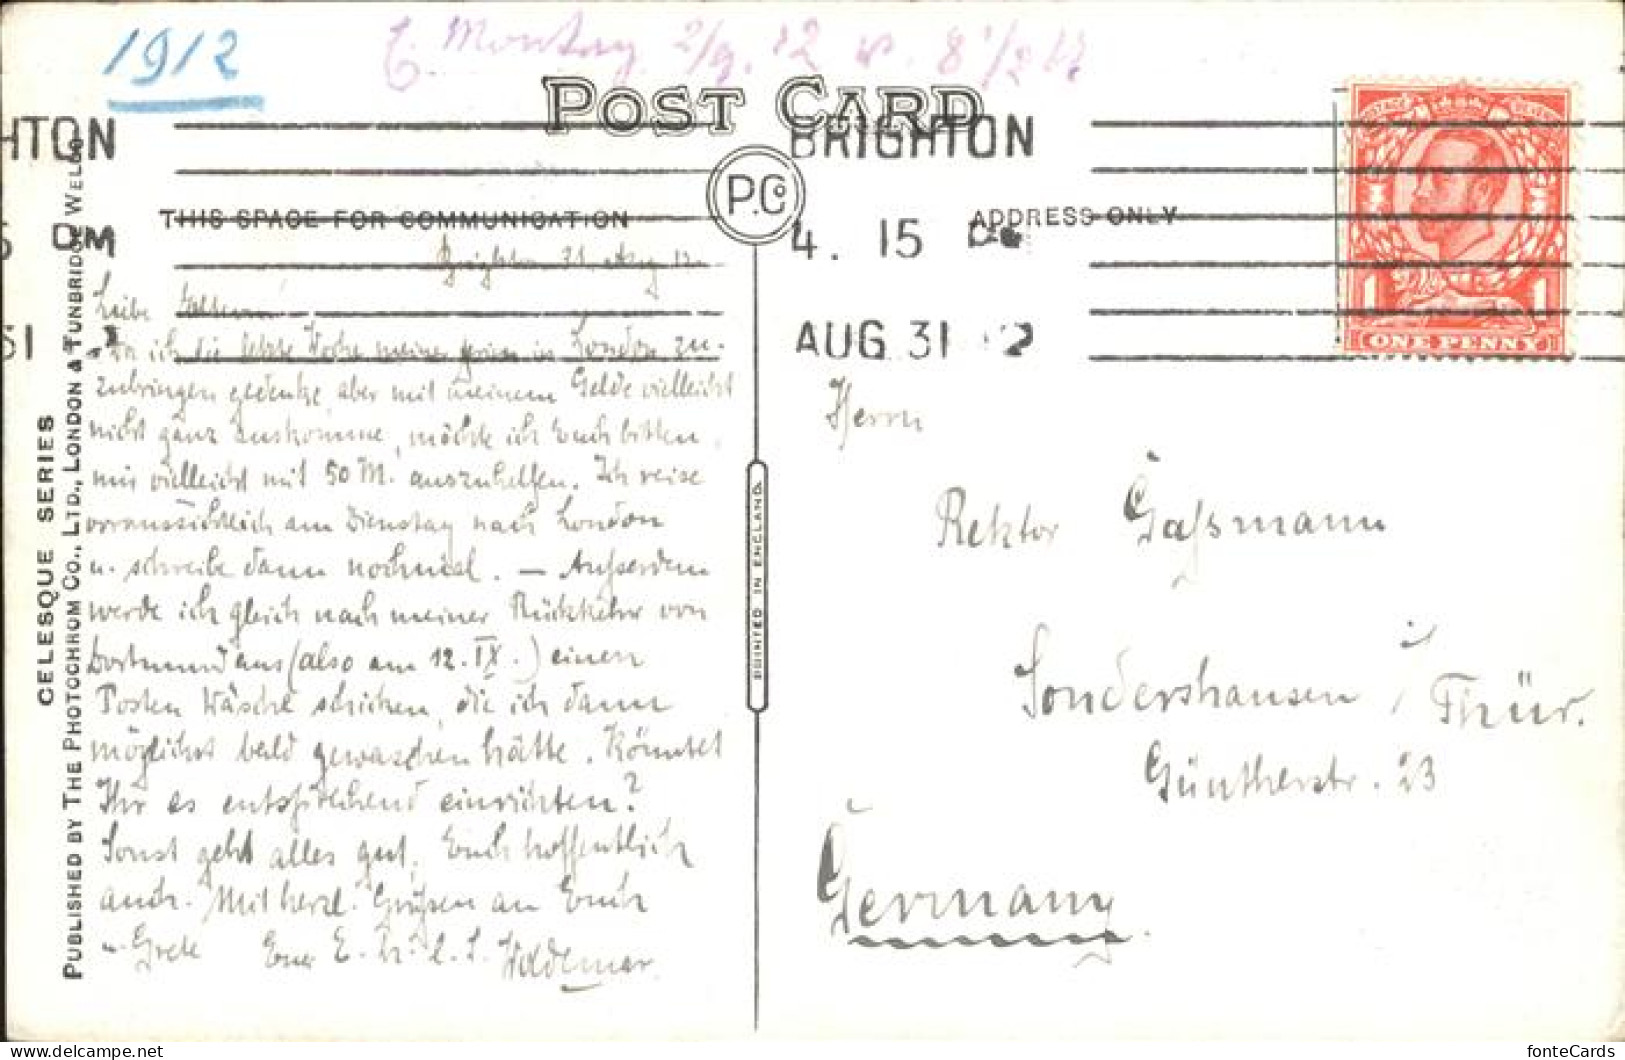 1912
E. Montag 2/9. 12 v. 8 1/2 U
POST CARD
BRIGHTON
HTON
P.Co
THIS SPACE FOR COMMUNICATION
ADDRESS ONLY
4. 15
AUG 31 12
ONE PENNY
CELESQUE SERIES
PUBLISHED BY THE PHOTOCHROM CO., LTD., LONDON & TUNBRIDGE WELLS.
PRINTED IN ENGLAND.
Brighton 31. Aug 12.
Liebe Eltern!
Da ich die letzte Woche meiner Ferien in London zu-
zubringen gedenke, aber mit meinem Gelde vielleicht
nicht ganz auskomme, möchte ich Euch bitten,
mir vielleicht mit 50 M. auszuhelfen. Ich reise
voraussichtlich am Dienstag nach London
u. schreibe dann nochmal. — Außerdem
werde ich gleich nach meiner Rückkehr von
Dortmund aus (also am 12. IX.) einen
Posten Wäsche schicken, die ich dann
möglichst bald gewaschen hätte. Könntet
Ihr es entsprechend einrichten?
Sonst geht alles gut, Euch hoffentlich
auch. Mit herzl. Grüßen an Euch
u. Grete Euer E. Woldemar.
Herrn
Rektor Gaßmann
Sondershausen i/Thür.
Güntherstr. 23
Germany
fonteCards
© delcampe.net